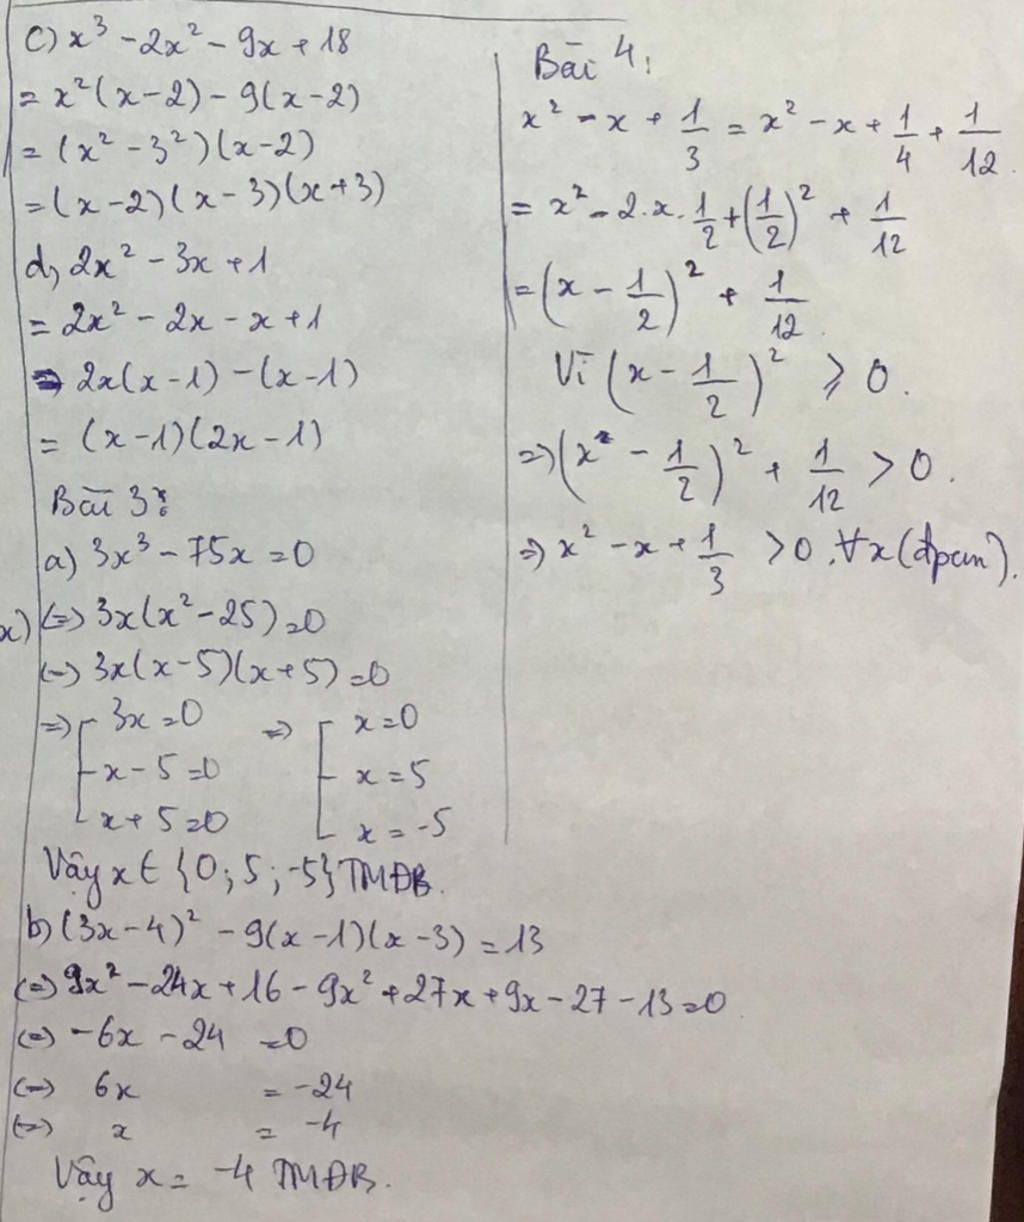 c) x³ - 2x² - 9x + 18
= x²(x-2) - 9(x-2)
= (x² - 3²)(x-2)
= (x-2)(x-3)(x+3)
d, 2x² - 3x + 1
= 2x² - 2x - x + 1
= 2x(x-1) - (x-1)
= (x-1)(2x-1)
Bài 3:
a) 3x³ - 75x = 0
x) (=) 3x(x² - 25) = 0
(=) 3x(x-5)(x+5) = 0
=) [ 3x = 0 =) [ x = 0
x - 5 = 0 x = 5
x + 5 = 0 x = -5
Vậy x ∈ {0; 5; -5} TMĐB.
b) (3x-4)² - 9(x-1)(x-3) = 13
(=) 9x² - 24x + 16 - 9x² + 27x + 9x - 27 - 13 = 0
(=) -6x - 24 = 0
(=) 6x = -24
(=) x = -4
Vậy x = -4 TMĐB.
Bài 4:
x² - x + 1/3 = x² - x + 1/4 + 1/12.
= x² - 2.x.1/2 + (1/2)² + 1/12
= (x - 1/2)² + 1/12.
Vì (x - 1/2)² ⩾ 0.
=) (x² - 1/2)² + 1/12 > 0.
=) x² - x + 1/3 > 0, ∀x (đpcm).